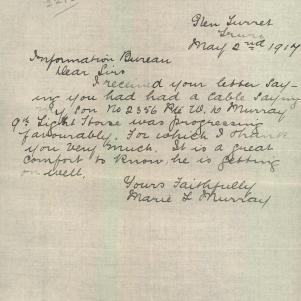 Glen Turret
Truro
May 2nd 1917
Information Bureau
Dear Sirs
I received your letter say-
ing you had had a cable saying
my son No 2356 Pte W. W Murray
9th Light Horse was progressing
favourably. For which I thank
you very much. It is a great
comfort to know he is getting
on well.
Yours Faithfully
Marie L Murray